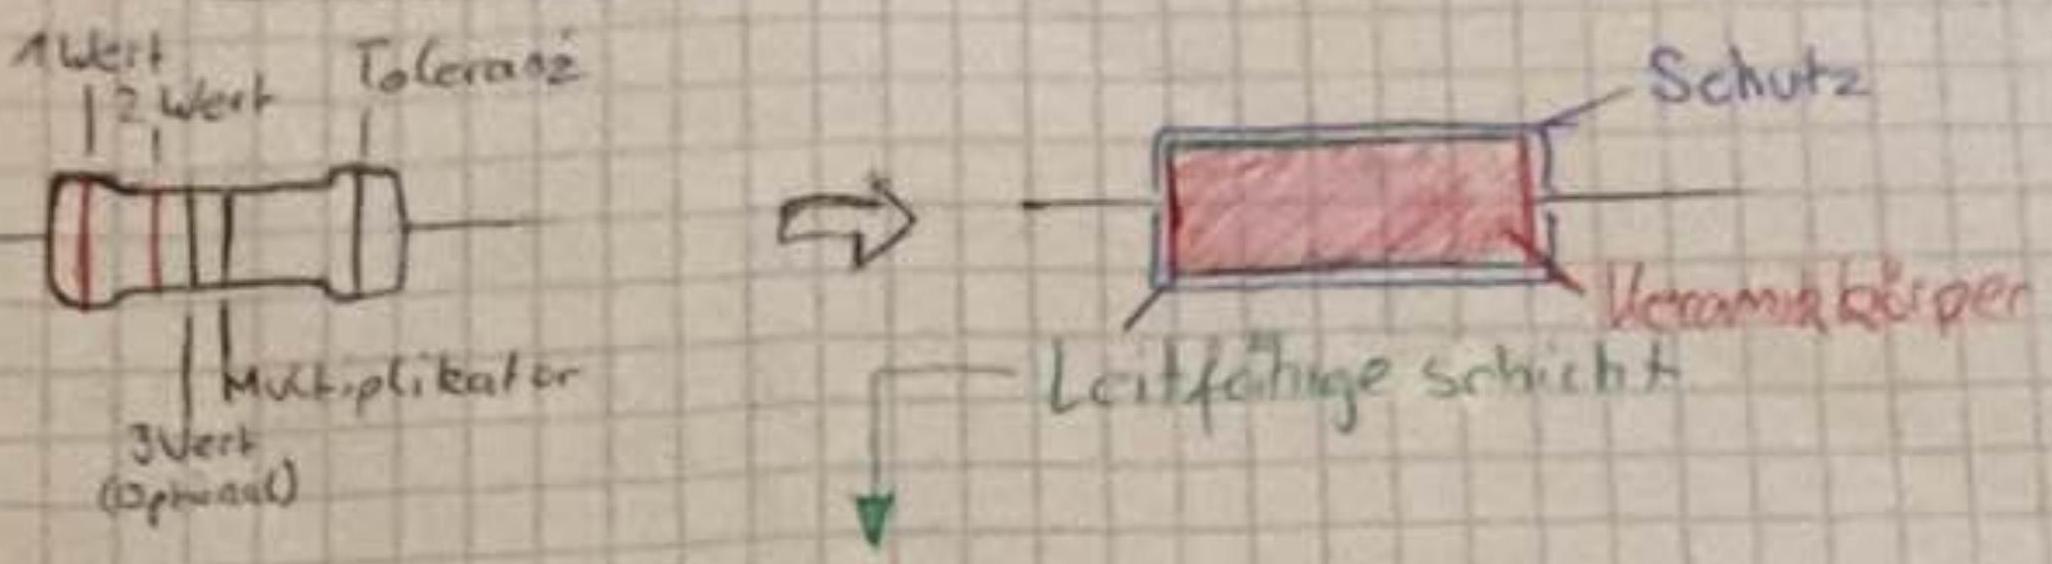 1 Wert
2 Wert
Toleranz
Multiplikator
3 Wert
(Optional)
Schutz
Keramikkörper
Leitfähige schicht